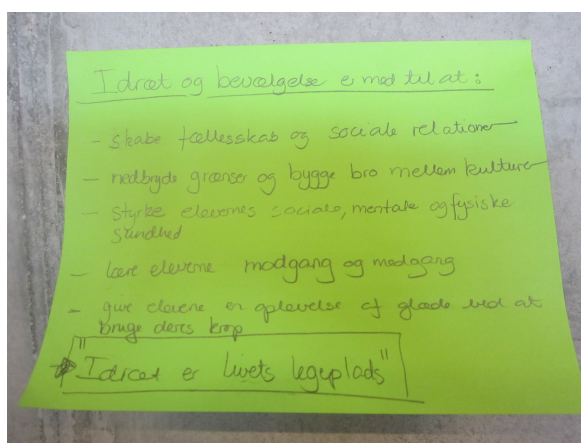 Idræt og bevælgelse er med til at:
- skabe fællesskab og sociale relationer
- nedbryde grænser og bygge bro mellem kulturer
- styrke elevernes sociale, mentale og fysiske
sundhed
- lære eleverne modgang og medgang
- give eleverne en oplevelse af glæde ved at
bruge deres krop
"Idræt er livets legeplads"